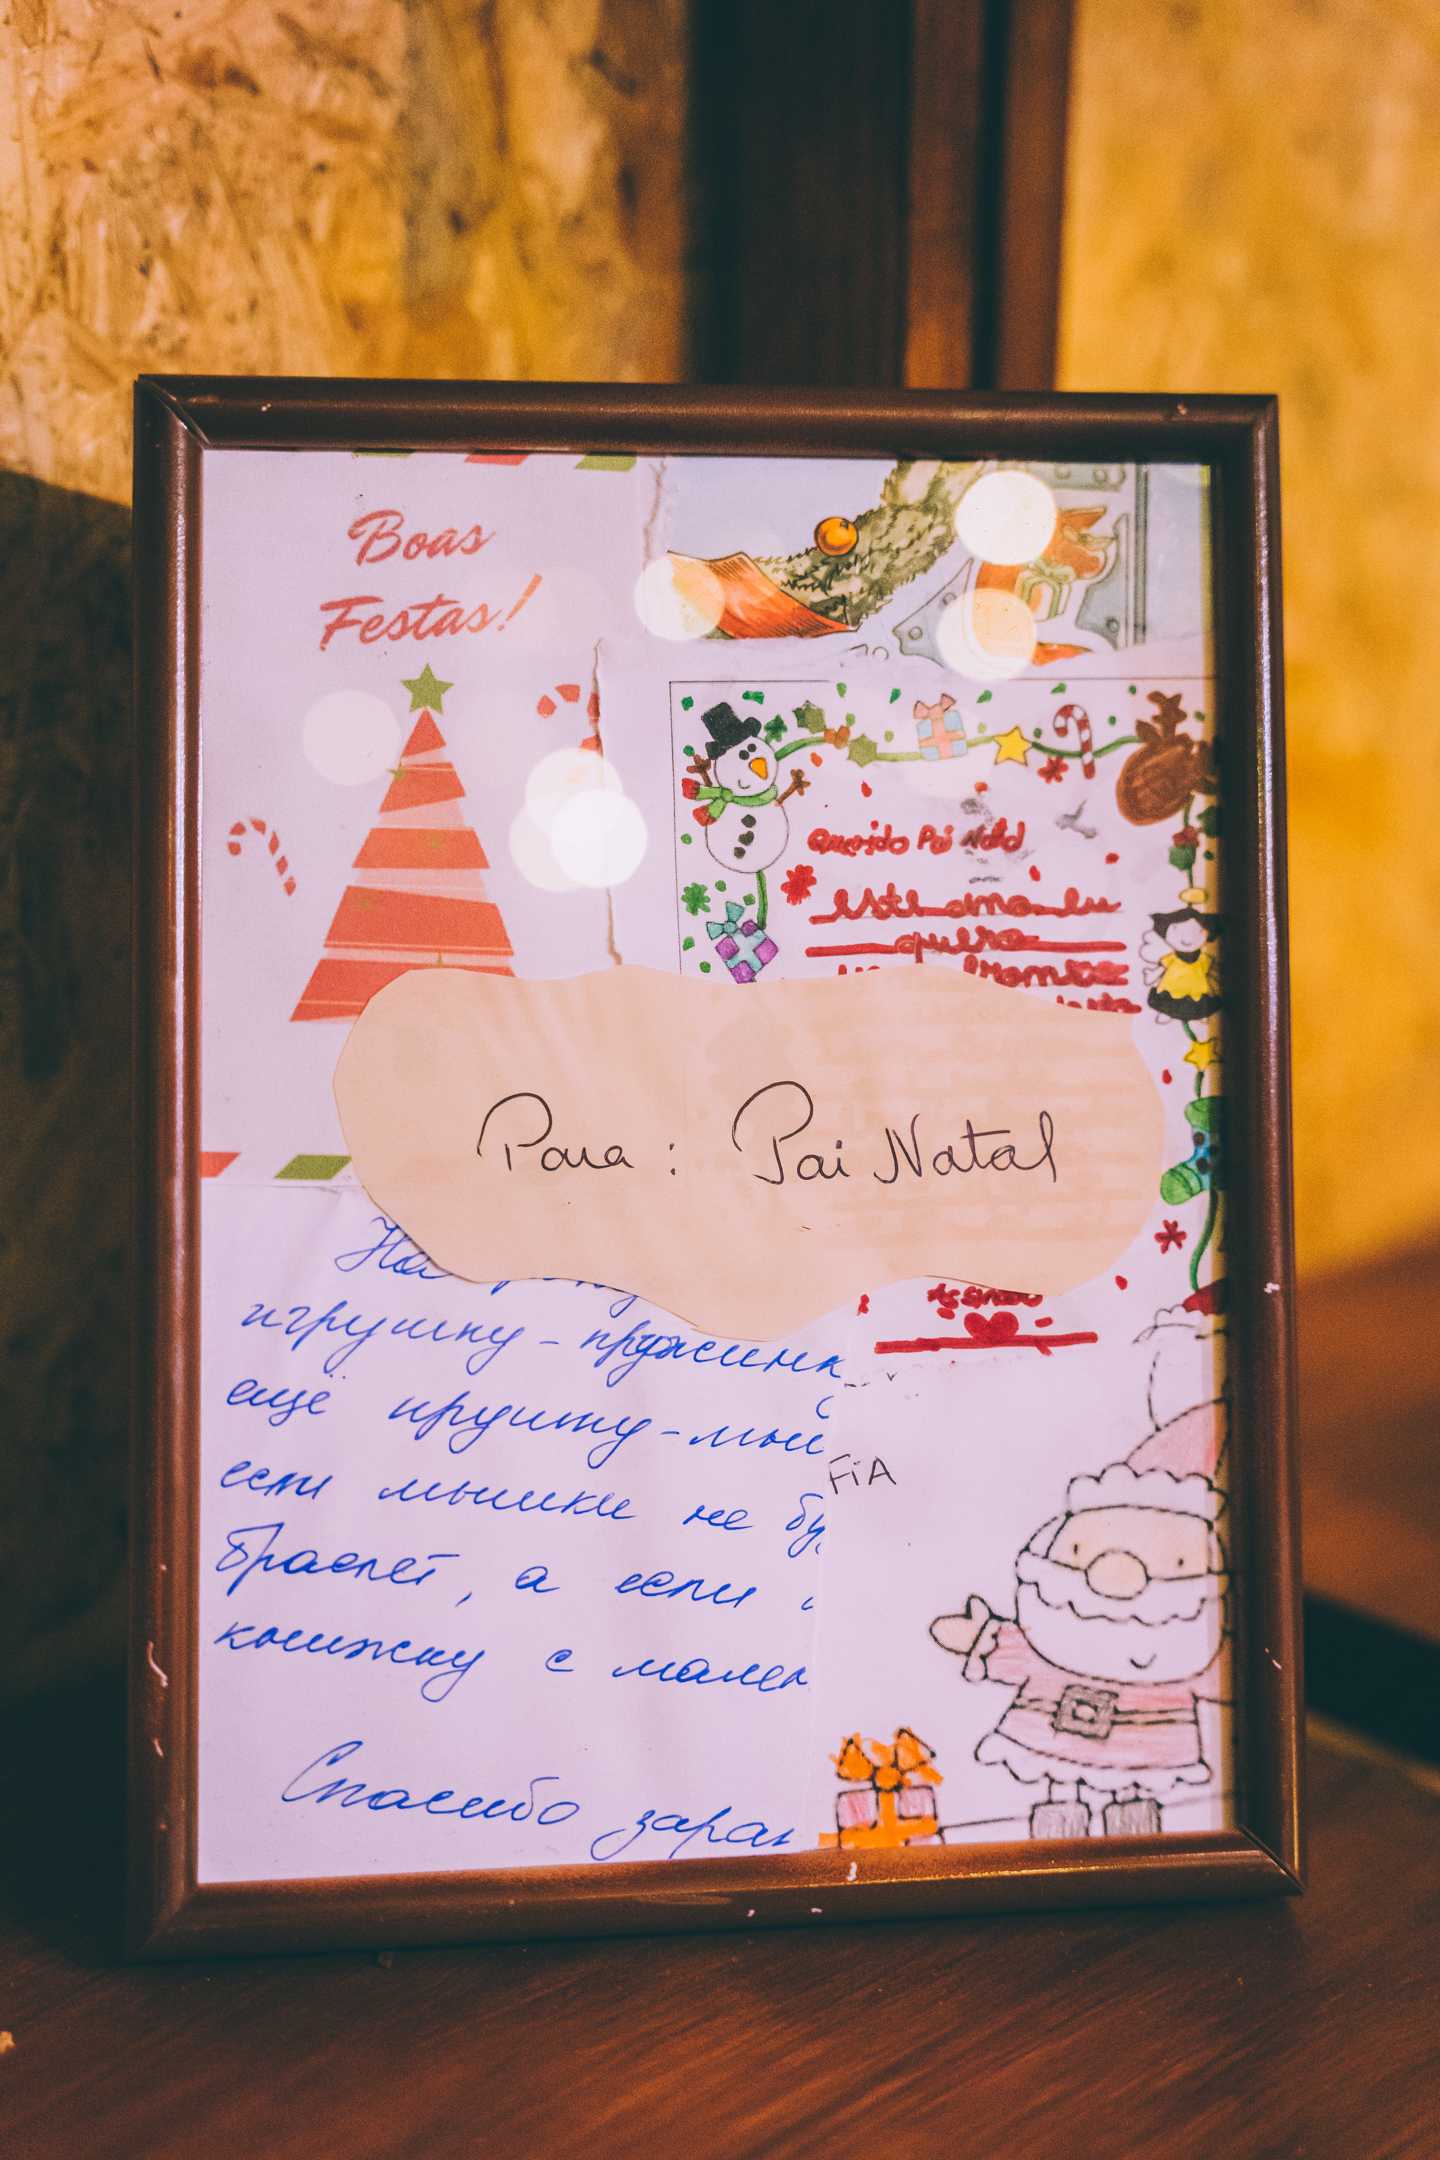 Boas
Festas!
Querido Pai Natal
este ano eu
quero
Para: Pai Natal
На
игрушку-пружинк
ещё
если мышки не бу
браслет, а если
книжку с мален
Спасибо заран
FiA